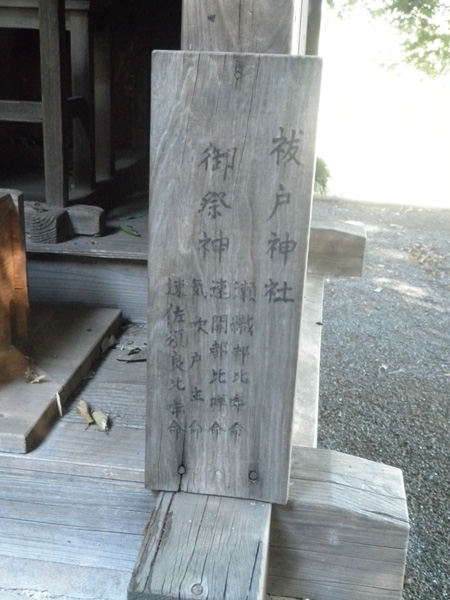 祓戸神社
御祭神
瀬織都比咩命
速開都比咩命
気吹戸主命
速佐須良比咩命